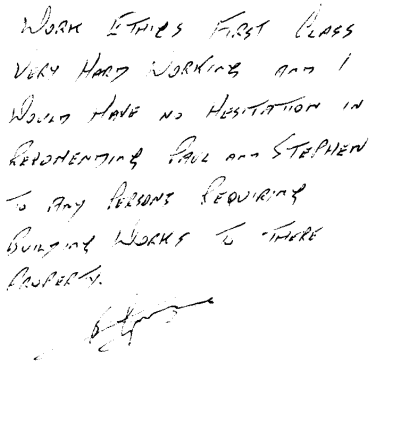 WORK ETHICS FIRST CLASS
VERY HARD WORKING AND I
WOULD HAVE NO HESITATION IN
REPOMENDING PAUL AND STEPHEN
TO ANY PERSONS REQUIRING
BUILDING WORKS TO THERE
PROPERTY.